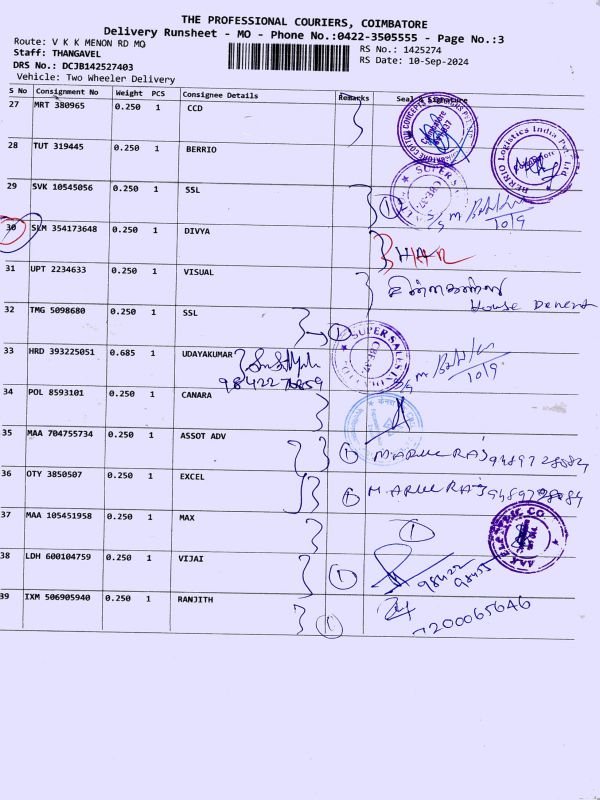 THE PROFESSIONAL COURIERS, COIMBATORE
Delivery Runsheet - MO - Phone No.:0422-3505555 - Page No.:3
Route: V K K MENON RD MO
RS No.: 1425274
Staff: THANGAVEL
RS Date: 10-Sep-2024
DRS No.: DCJB142527403
Vehicle: Two Wheeler Delivery
S No Consignment No Weight PCS Consignee Details Remarks Seal & Signature
27 MRT 380965 0.250 1 CCD
28 TUT 319445 0.250 1 BERRIO
BERRIO Logistics India Pvt Ltd
29 SVK 10545056 0.250 1 SSL 1
SUPER SAL
CBE-37.
10/9
30 SLM 354173648 0.250 1 DIVYA
31 UPT 2234633 0.250 1 VISUAL
House
32 TMG 5098680 0.250 1 SSL 1
SUPER SALES INDIA
CBE-37.
10/9
33 HRD 393225051 0.685 1 UDAYAKUMAR
34 POL 8593101 0.250 1 CANARA
35 MAA 704755734 0.250 1 ASSOT ADV 1 9489728084
36 OTY 3850507 0.250 1 EXCEL 1 9489728084
37 MAA 105451958 0.250 1 MAX 1
ELECTRIC CO
38 LDH 600104759 0.250 1 VIJAI 1 98422
98455
39 IXM 506905940 0.250 1 RANJITH 1 7200065646